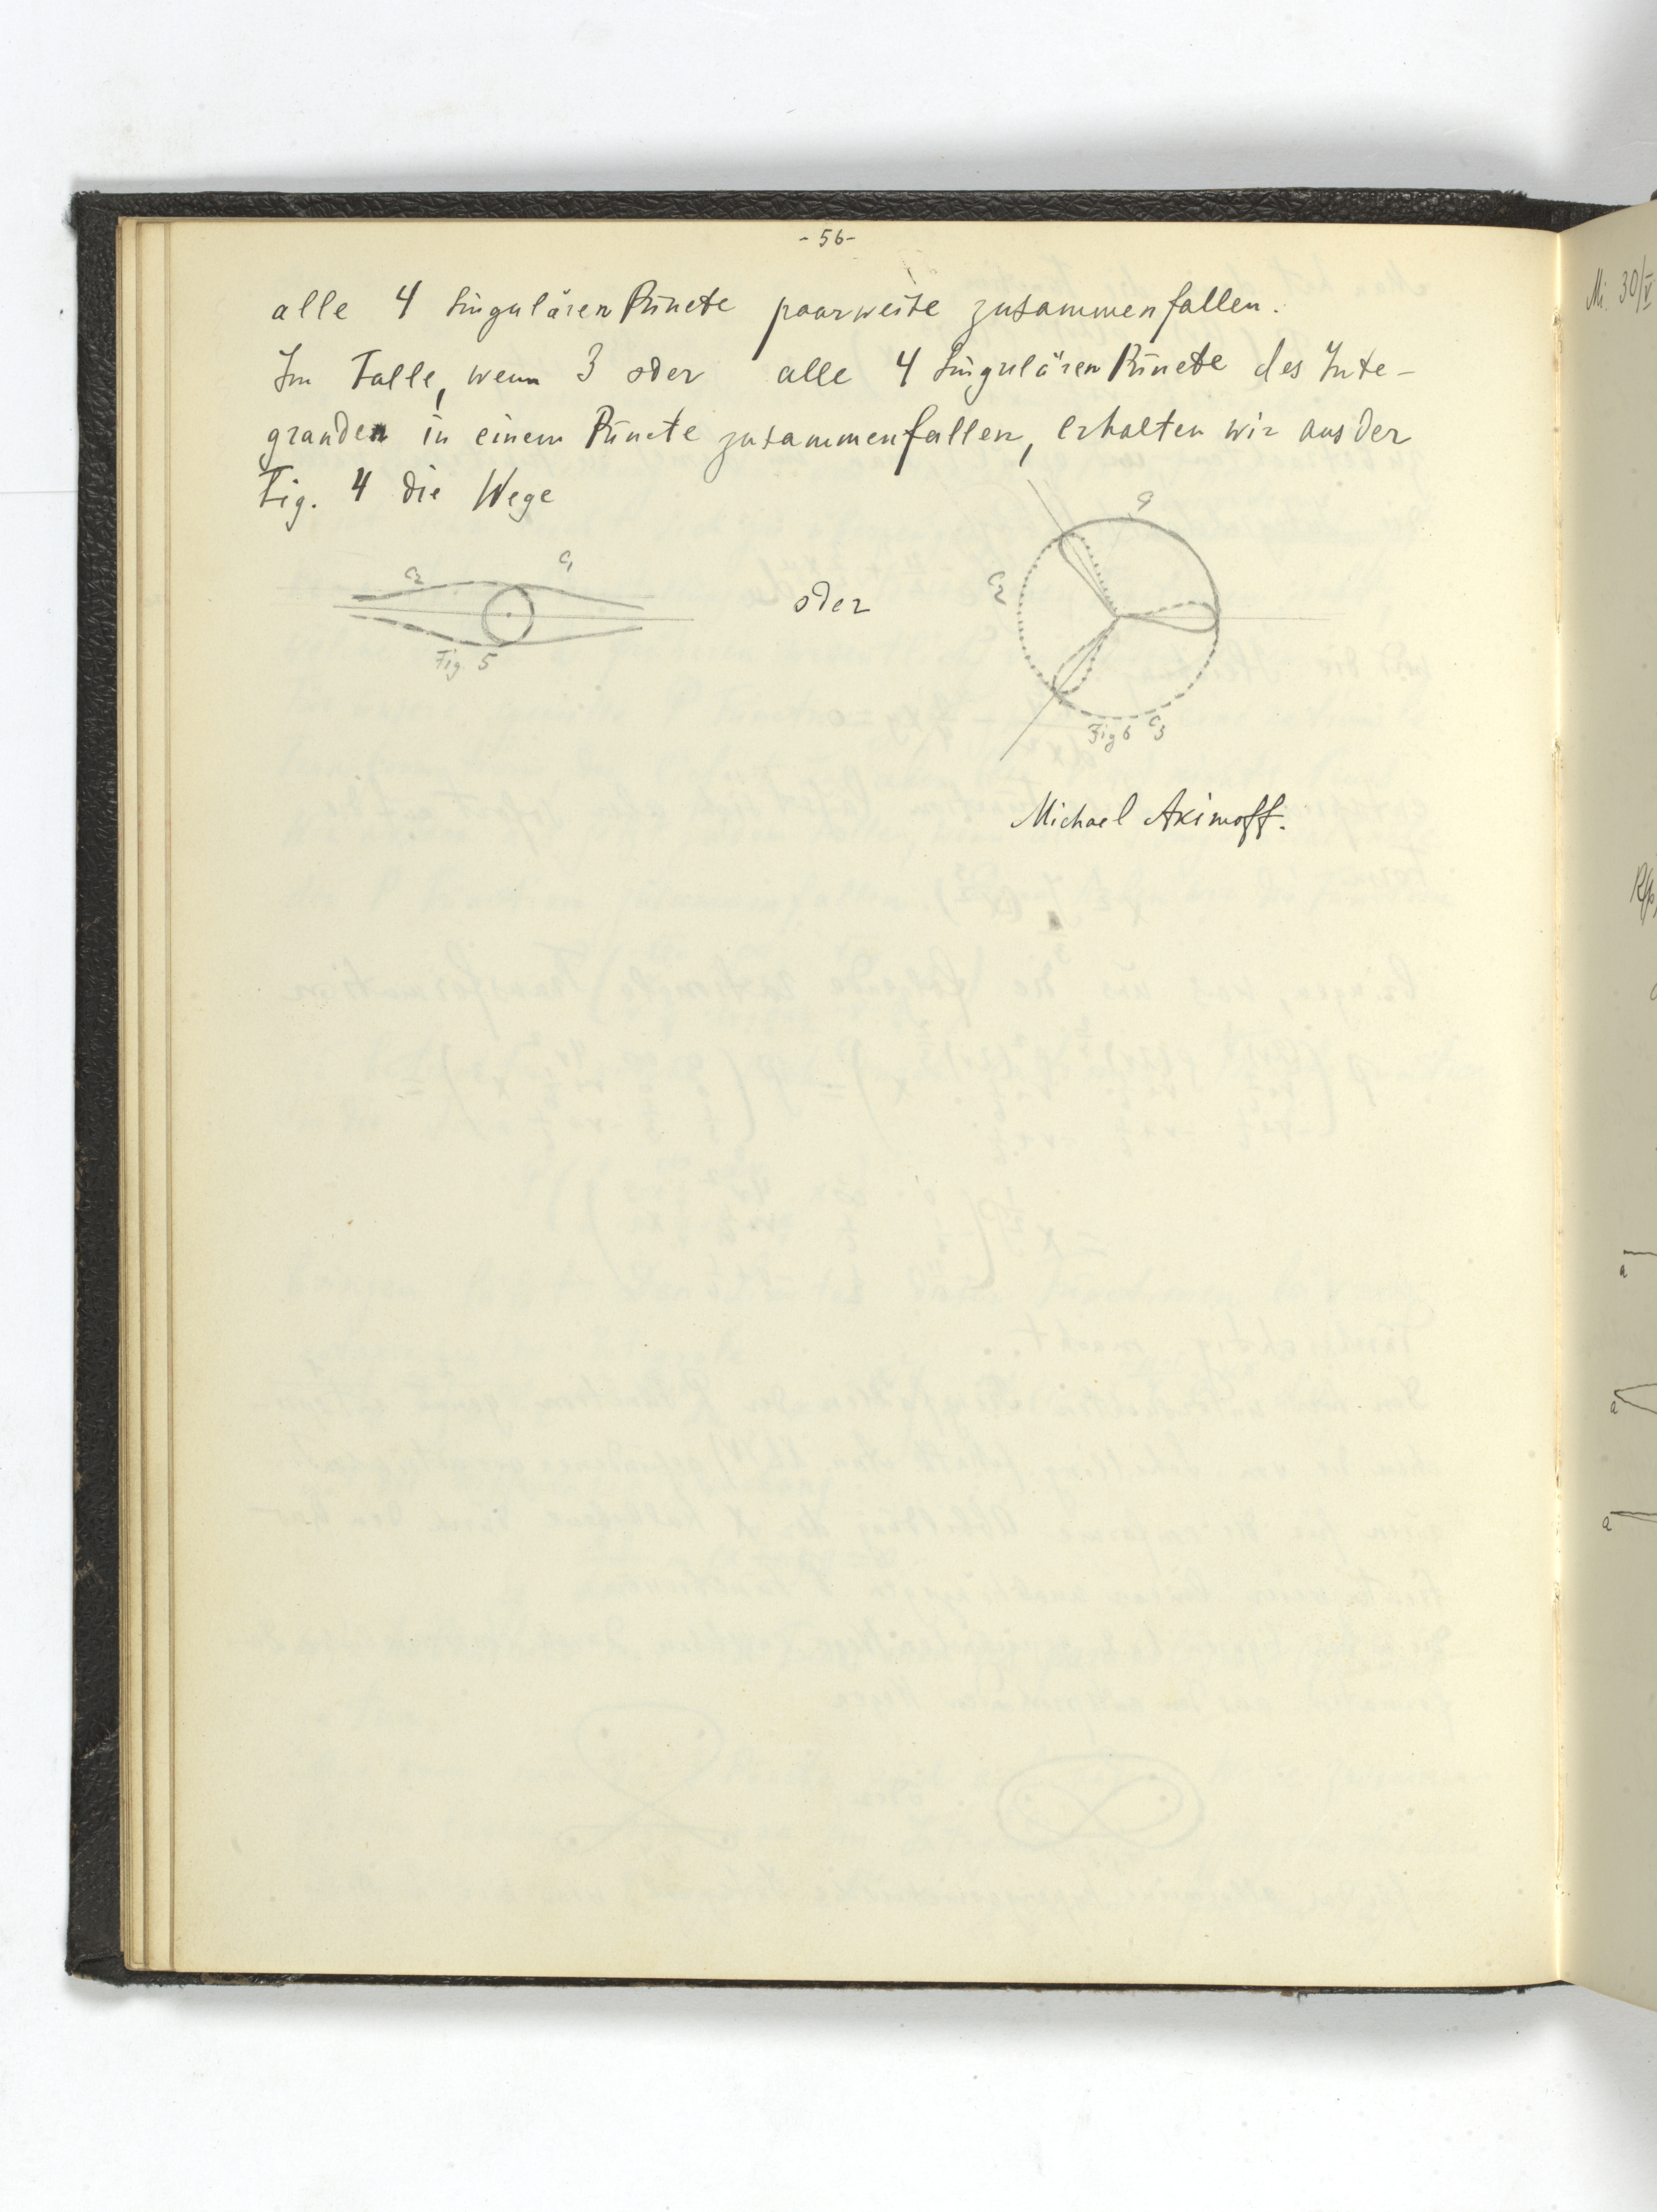 - 56 -
alle 4 singulären Püncte paarweise zusammenfallen.
Im Falle, wenn 3 oder alle 4 singulären Püncte des Inte-
granden in einem Püncte zusammenfallen, erhalten wir aus der
Fig. 4 die Wege
C2 C1
oder
C1
C2
Fig. 5
Fig 6 C3
Michael Akimoff.
Mi 30/V
a
a
a